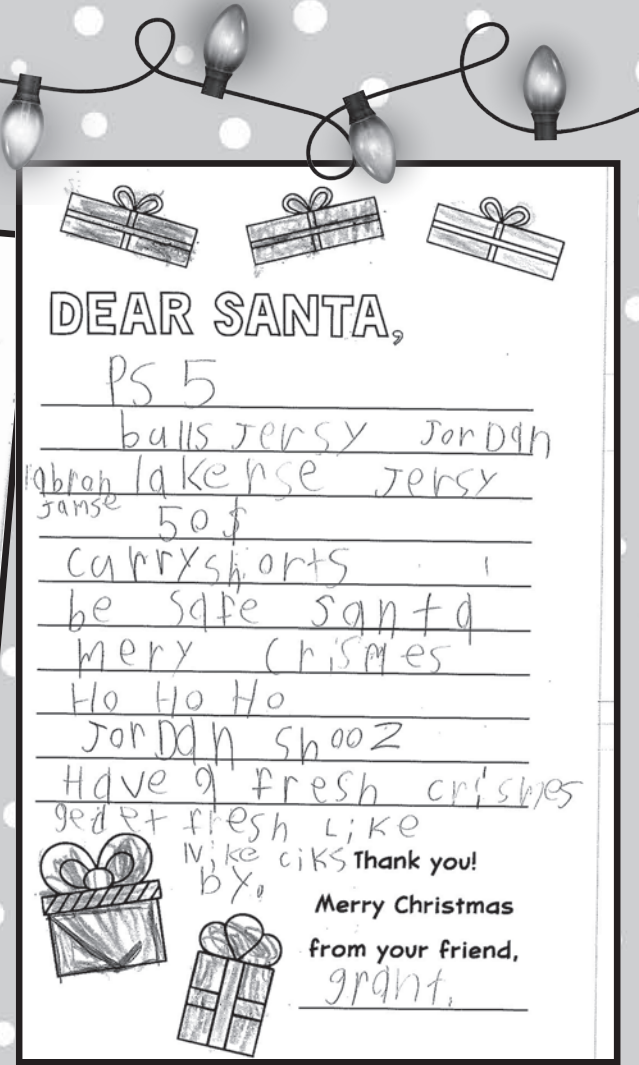 DEAR SANTA,
PS 5
balls Jersy JorDan
labran lakerse Jersy
Jamse
50$
carryshorts
be safe santa
mery Crismes
Ho Ho Ho
JorDan shooz
Have a fresh crismes
ged et fresh Like
Nike ciks
by.
Thank you!
Merry Christmas
from your friend,
grant.